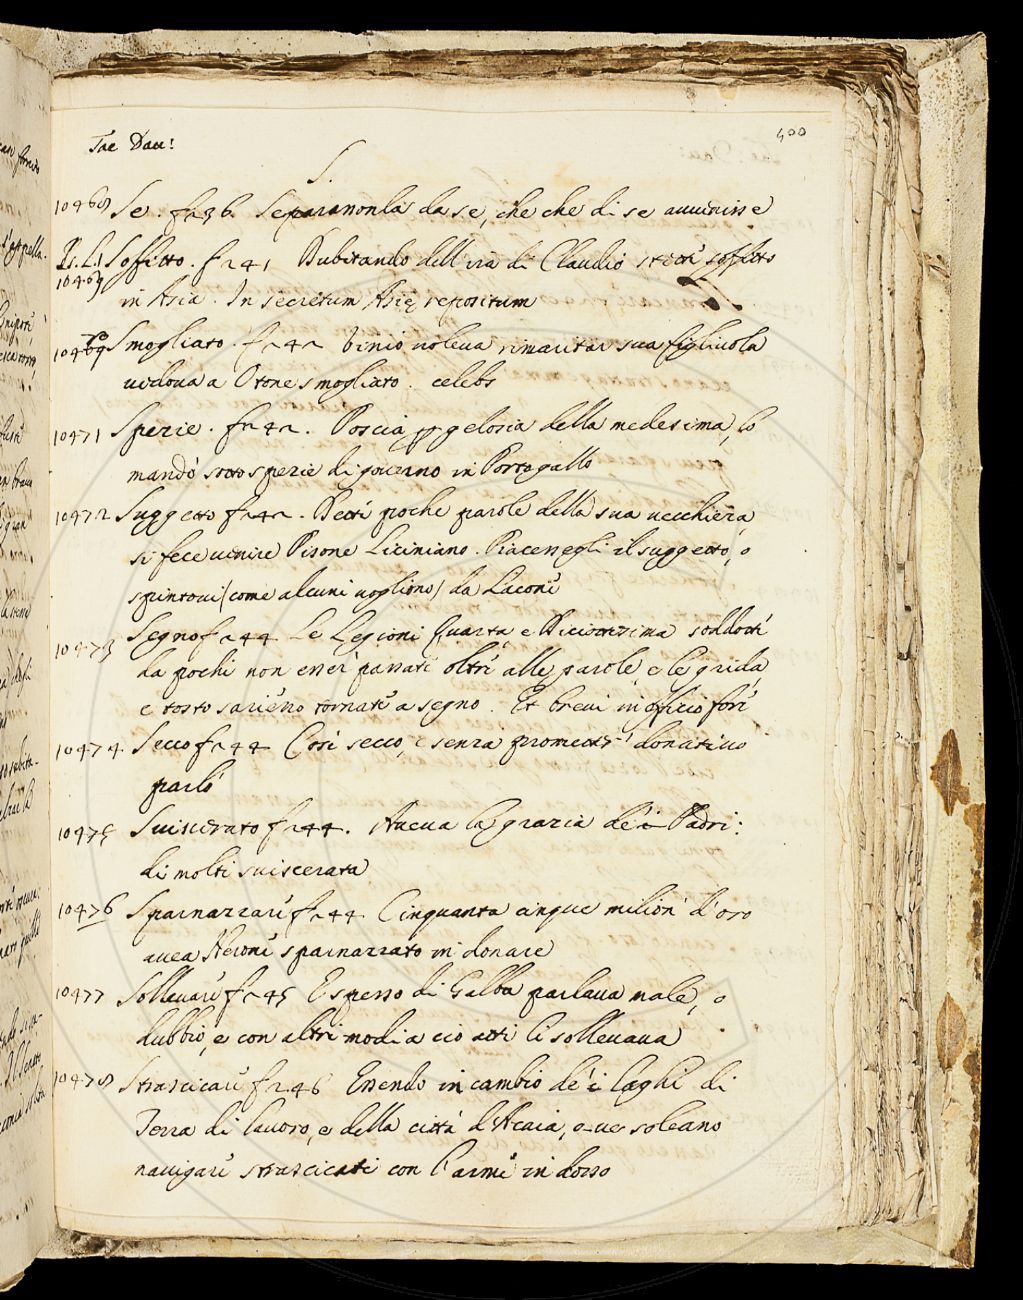 Tac Dau:
400
S.
10468 Se. f 236. Separanonla da se, che che di se avvenisse
Ps. L1 Soffitto. f 241 Dubitando dell'ira di Claudio stette soffitto
10469 in Asia. In secretum Asię repositum
10469 Smogliato. f 242 Vinio voleva rimaritar sua figliuola
vedova a Otone smogliato. celebs
10471 Spezie. f 242. Poscia gelosia della medesima, lo
mandò sotto spezie di governo in Portogallo
10472 Suggetto f 242. Detti poche parole della sua vecchiezza,
si fece venire Pisone Liciniano. Piacenegli il suggetto, o
spintovi (come alcuni vogliono) da Lacone
10473 Segno f 244 Le Legioni Quarta, e Diciottesima soddotte
da pochi non esser passati oltre alle parole, e le grida,
e tosto sarieno tornate a segno. Et brevi in officio fore
10474 Secco f 244 Così secco, e senza promettere donativo
parlò
10475 Sviscerato f 244. Aveva la grazia de' i Padri:
di molti sviscerata
10476 Sparnazzare f 244 Cinquanta cinque milion' d'oro
avea Nerone sparnazzato in donare
10477 Sollevare f 245 E spesso di Galba parlava male, o
dubbio, e con altri modi a ciò atti li sollevava
10478 Strascicare f 246 Essendo in cambio de' i laghi di
Terra di lavoro, e della città d'Acaia, ove soleano
navigare strascicati con l'arme in dosso